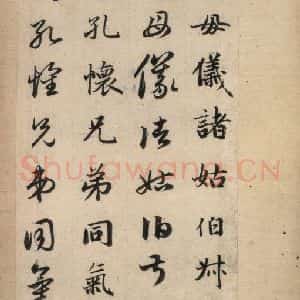 母儀諸姑伯叔
母儀諸姑伯叔
孔懷兄弟同氣
孔懷兄弟同氣
Shufawang.CN